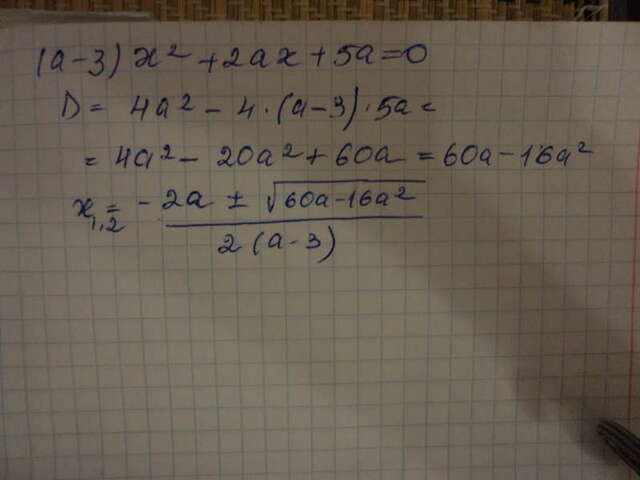 (a-3)x²+2ax+5a=0
D= 4a²-4·(a-3)·5a=
= 4a²-20a²+60a=60a-16a²
x₁,₂= -2a ± √60a-16a²
2(a-3)